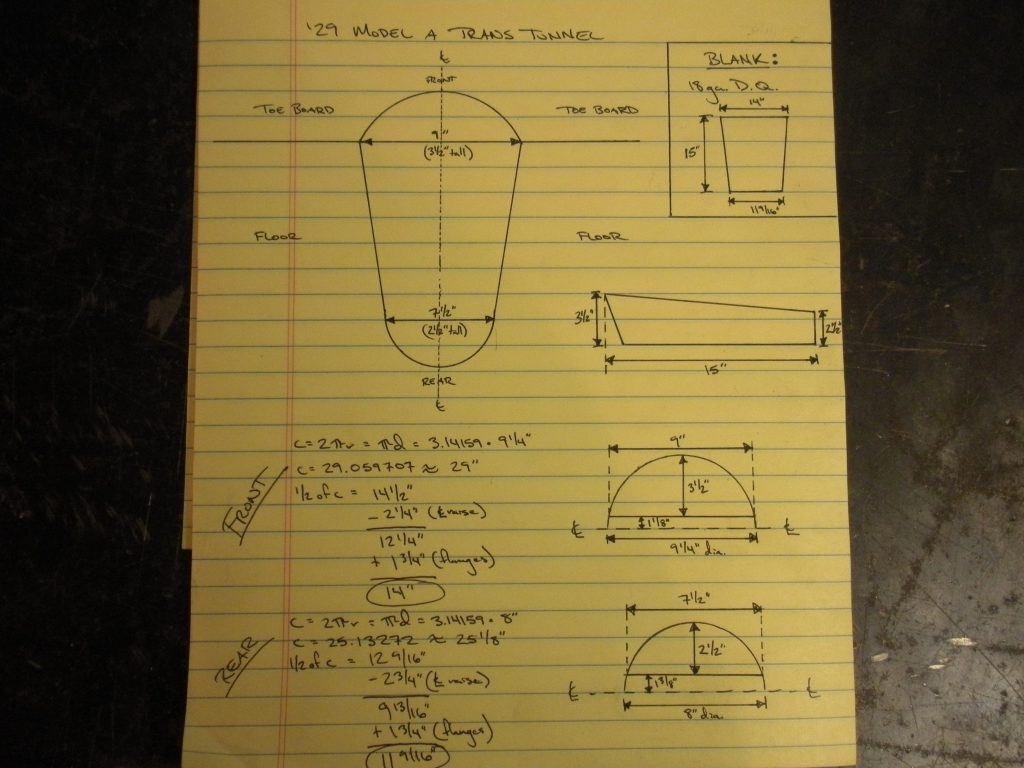 '29 MODEL A TRANS TUNNEL
℄
FRONT
TOE BOARD
TOE BOARD
9"
(3½" tall)
FLOOR
FLOOR
7½"
(2½" tall)
REAR
℄
BLANK:
18 ga. D.Q.
14"
15"
11 9/16"
3½"
2½"
15"
FRONT
C = 2πr = πd = 3.14159 · 9¼"
C = 29.059707 ≈ 29"
1/2 of c = 14½"
- 2¼" (℄ raise)
12¼"
+ 1¾" (flanges)
14"
9"
3½"
1⅛"
℄ ℄
9¼" dia.
REAR
C = 2πr = πd = 3.14159 · 8"
C = 25.13272 ≈ 25⅛"
1/2 of c = 12 9/16"
- 2¾" (℄ raise)
9 13/16"
+ 1¾" (flanges)
11 9/16"
7½"
2½"
1⅜"
℄ ℄
8" dia.